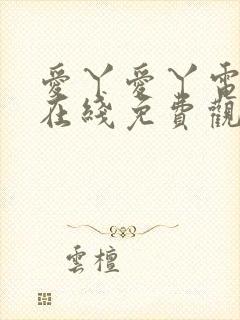 愛丫愛丫電
在綫免費觀
雲檀